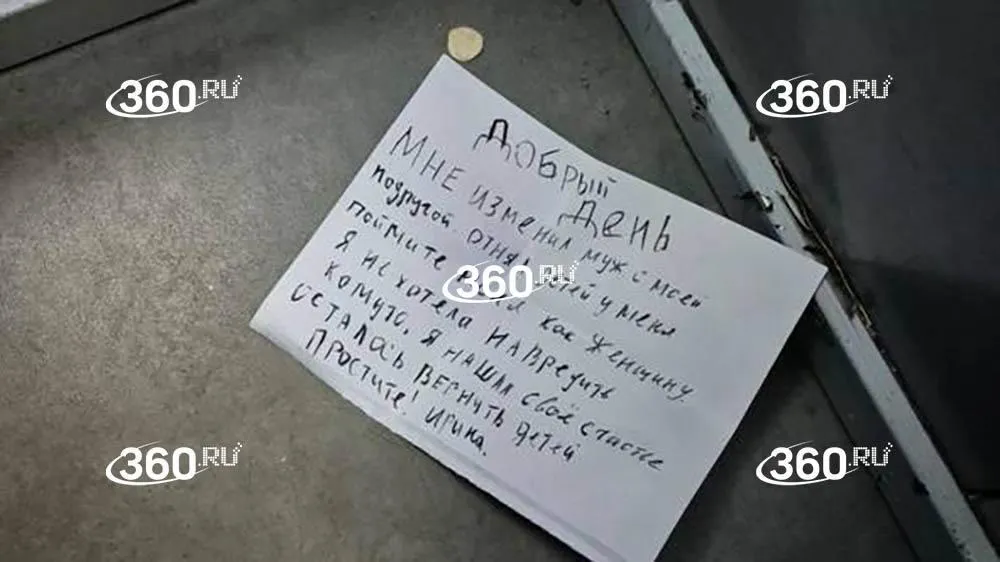 360.RU
360.RU
Добрый
День
МНЕ изменил муж с моей
подругой. отнял у меня
поймите как женщину.
Я не хотела навредить
комуто. Я нашла своё счастье
осталось вернуть детей
Простите! Ирина.
360.RU
360.RU
360.RU